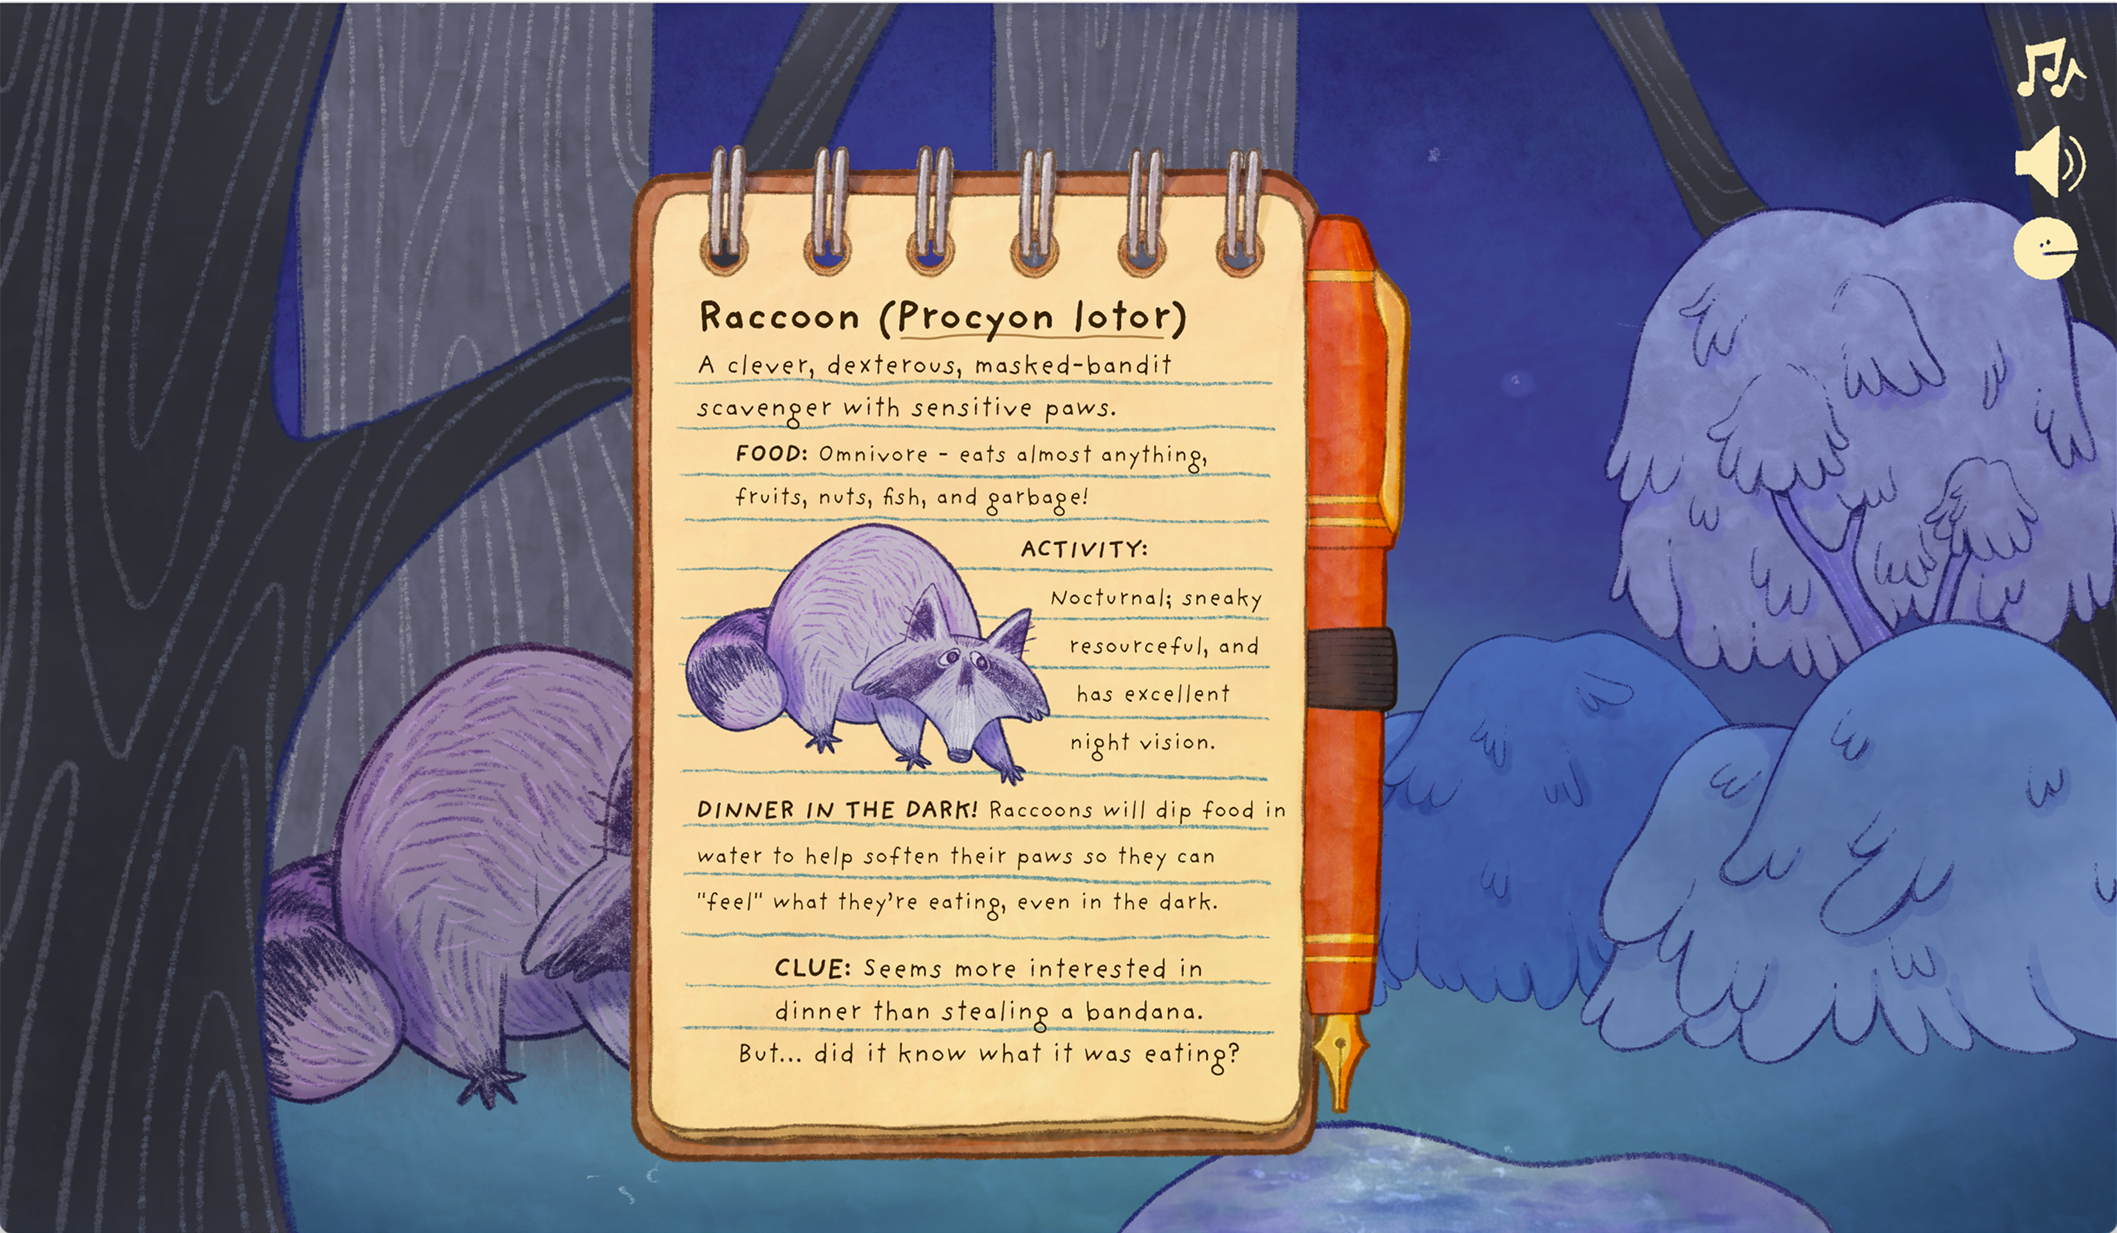 Raccoon (Procyon lotor)
A clever, dexterous, masked-bandit
scavenger with sensitive paws.
FOOD: Omnivore - eats almost anything,
fruits, nuts, fish, and garbage!
ACTIVITY:
Nocturnal; sneaky
resourceful, and
has excellent
night vision.
DINNER IN THE DARK! Raccoons will dip food in
water to help soften their paws so they can
"feel" what they're eating, even in the dark.
CLUE: Seems more interested in
dinner than stealing a bandana.
But... did it know what it was eating?